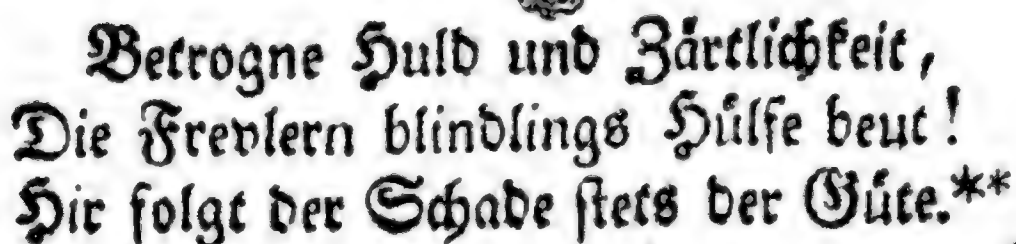 Betrogne Huld und Zärtlichkeit,
Die Frevlern blindlings Hülfe beut!
Hir folgt der Schade stets der Güte.**